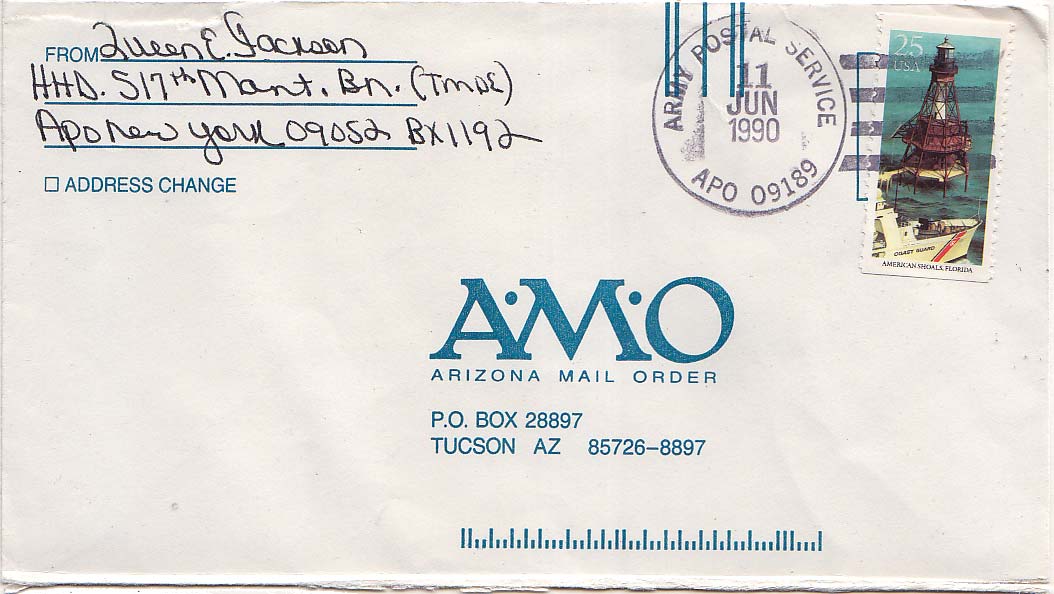 FROM Queen E. Jackson
HHD. 517th Mant. Bn. (TMDE)
Apo new york 09052 BX1192
☐ ADDRESS CHANGE
ARMY POSTAL SERVICE
11
JUN
1990
APO 09189
25
USA
COAST GUARD
AMERICAN SHOALS, FLORIDA
A·M·O
ARIZONA MAIL ORDER
P.O. BOX 28897
TUCSON AZ 85726-8897